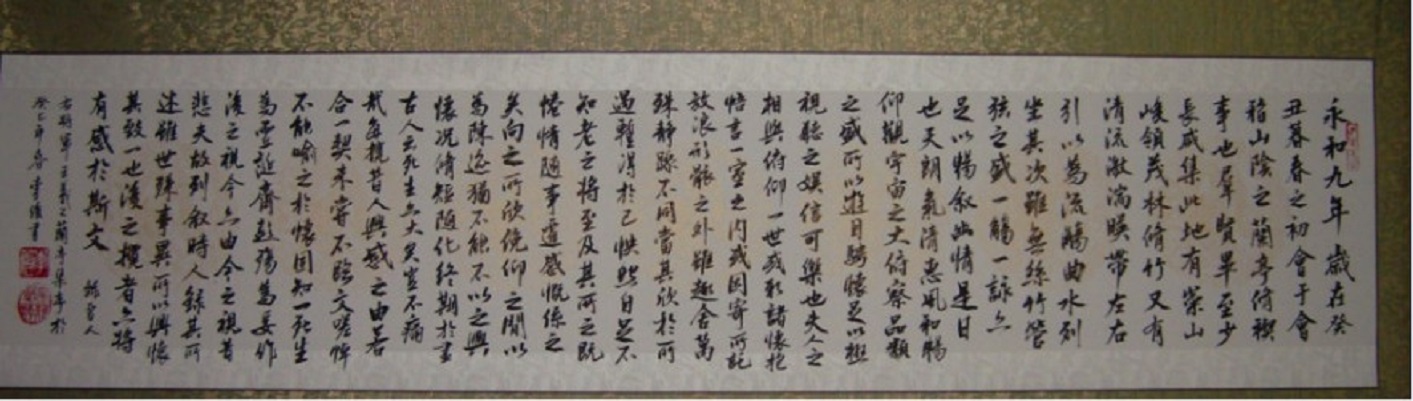 永和九年歲在癸
丑暮春之初會于會
稽山陰之蘭亭脩禊
事也羣賢畢至少
長咸集此地有崇山
峻領茂林脩竹又有
清流激湍暎帶左右
引以為流觴曲水列
坐其次雖無絲竹管
弦之盛一觴一詠亦
足以暢叙幽情是日
也天朗氣清惠風和暢
仰觀宇宙之大俯察品類
之盛所以遊目騁懷足以極
視聽之娛信可樂也夫人之
相與俯仰一世或取諸懷抱
悟言一室之內或因寄所託
放浪形骸之外雖趣舍萬
殊靜躁不同當其欣於所
遇暫得於己怏然自足不
知老之將至及其所之既
惓情隨事遷感慨係之
矣向之所欣俛仰之間以
為陳迹猶不能不以之興
懷況脩短隨化終期於盡
古人云死生亦大矣豈不痛
哉每攬昔人興感之由若
合一契未嘗不臨文嗟悼
不能喻之於懷固知一死生
為虛誕齊彭殤為妄作
後之視今亦由今之視昔
悲夫故列叙時人錄其所
述雖世殊事異所以興懷
其致一也後之攬者亦將
有感於斯文
右將軍王羲之蘭亭集序於
癸巳年春書